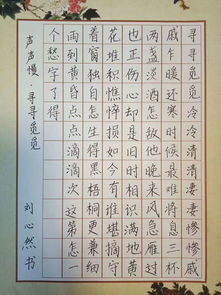 寻寻觅觅冷冷清清凄凄惨惨戚
戚乍暖还寒时候最难将息三杯
两盏淡酒怎敌他晚来风急雁过
也正伤心却是旧时相识满地黄
花堆积憔悴损如今有谁堪摘守
着窗独自怎生得黑梧桐更兼细
雨到黄昏点点滴滴这次第怎一
个愁字了得
声声慢·寻寻觅觅
刘心然书